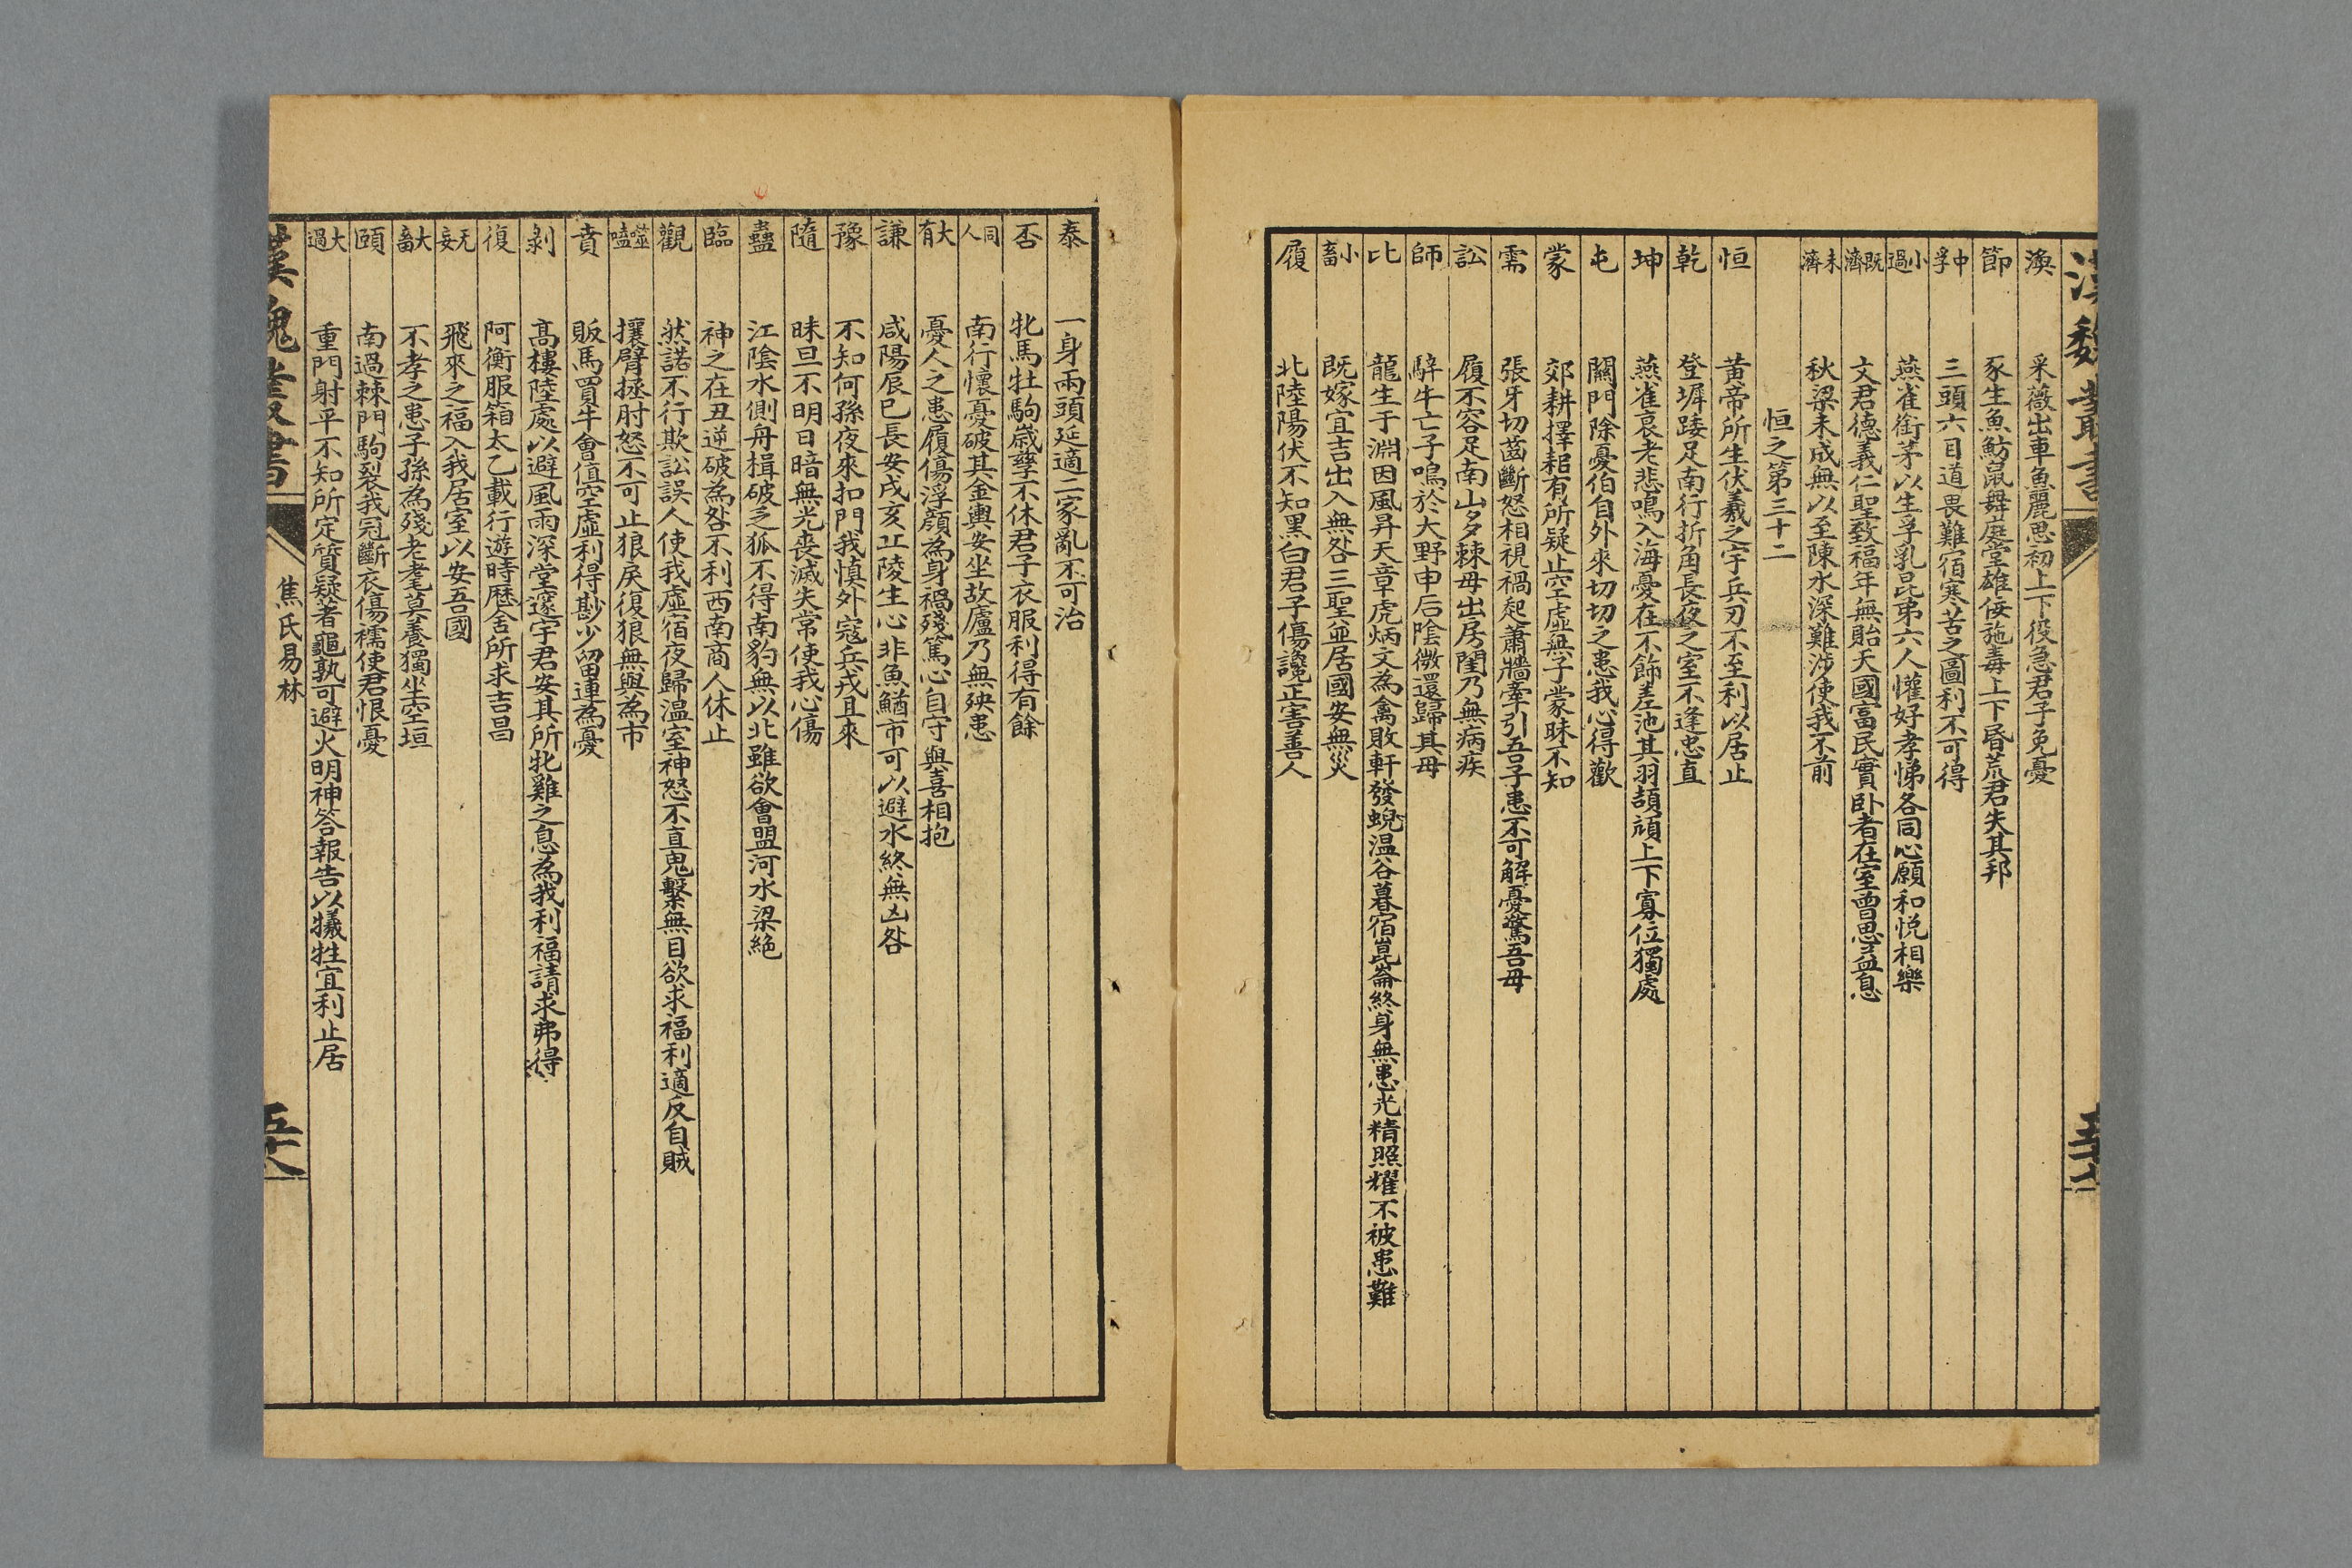 漢魏叢書
渙 采薇出車魚麗思初上下役急君子免憂
節 豕生魚魴鼠舞庭堂雄佞施毒上下昏荒君失其邦
中孚 三頭六目道畏難宿寒苦之國利不可得
小過 燕雀銜茅以生孚乳昆弟六人懽好孝悌各同心願和悅相樂
既濟 文君德義仁聖致福年無貽夭國富民實臥者在室曾思益息
未濟 秋梁未成無以至陳水深難涉使我不前
恒之第三十二
恒 黃帝所生伏羲之宇兵刃不至利以居止
乾 登墀踒足南行折角長夜之室不逢忠直
坤 燕雀哀老悲鳴入海憂在不飾差池其羽頡頏上下寡位獨處
屯 關門除憂伯自外來切切之患我心得歡
蒙 郊耕擇耜有所疑止空虛無子蒙昧不知
需 張牙切齒斷怒相視禍起蕭牆牽引吾子患不可解憂驚吾母
訟 履不容足南山多棘毋出房闈乃無病疾
師 騂牛亡子鳴於大野申后陰微還歸其母
比 龍生于淵因風昇天章虎炳文為禽敗軒發蜺溫谷暮宿崑崙終身無患光精照耀不被患難
小畜 既嫁宜吉出入無咎三聖並居國安無災
履 北陸陽伏不知黑白君子傷讒正害善人
泰 一身兩頭延適二家亂不可治
否 牝馬牡駒歲孳不休君子衣服利得有餘
同人 南行懷憂破其金輿安坐故廬乃無殃患
大有 憂人之患履傷浮顏為身禍殘篤心自守與喜相抱
謙 咸陽辰巳長安戌亥丘陵生心非魚鰌市可以避水終無凶咎
豫 不知何孫夜來扣門我慎外寇兵戎且來
隨 昧旦不明日暗無光喪滅失常使我心傷
蠱 江陰水側舟楫破乏狐不得南豹無以北雖欲會盟河水梁絕
臨 神之在丑逆破為咎不利西南商人休止
觀 然諾不行欺訟誤人使我虛宿夜歸溫室神怒不直鬼擊無目欲求福利適反自賊
噬嗑 攘臂拯肘怒不可止狼戾復狼無與為市
賁 販馬買牛會值空虛利得尠少留連為憂
剝 高樓陸處以避風雨深堂邃宇君安其所牝雞之息為我利福請求弗得
復 阿衡服箱太乙載行遊時歷舍所求吉昌
无妄 飛來之福入我居室以安吾國
大畜 不孝之患子孫為殘老耄莫養獨坐空垣
頤 南過棘門駒裂我冠斷衣傷襦使君恨憂
大過 重門射平不知所定質疑蓍龜孰可避火明神答報告以犧牲宜利止居
漢魏叢書 焦氏易林 五十八